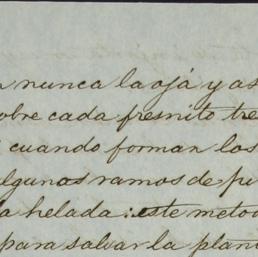 nunca la ojá y as
obre cada fresnito tre
cuando forman los
algunos ramos de pi
a helada: este metod
para salvar la plan